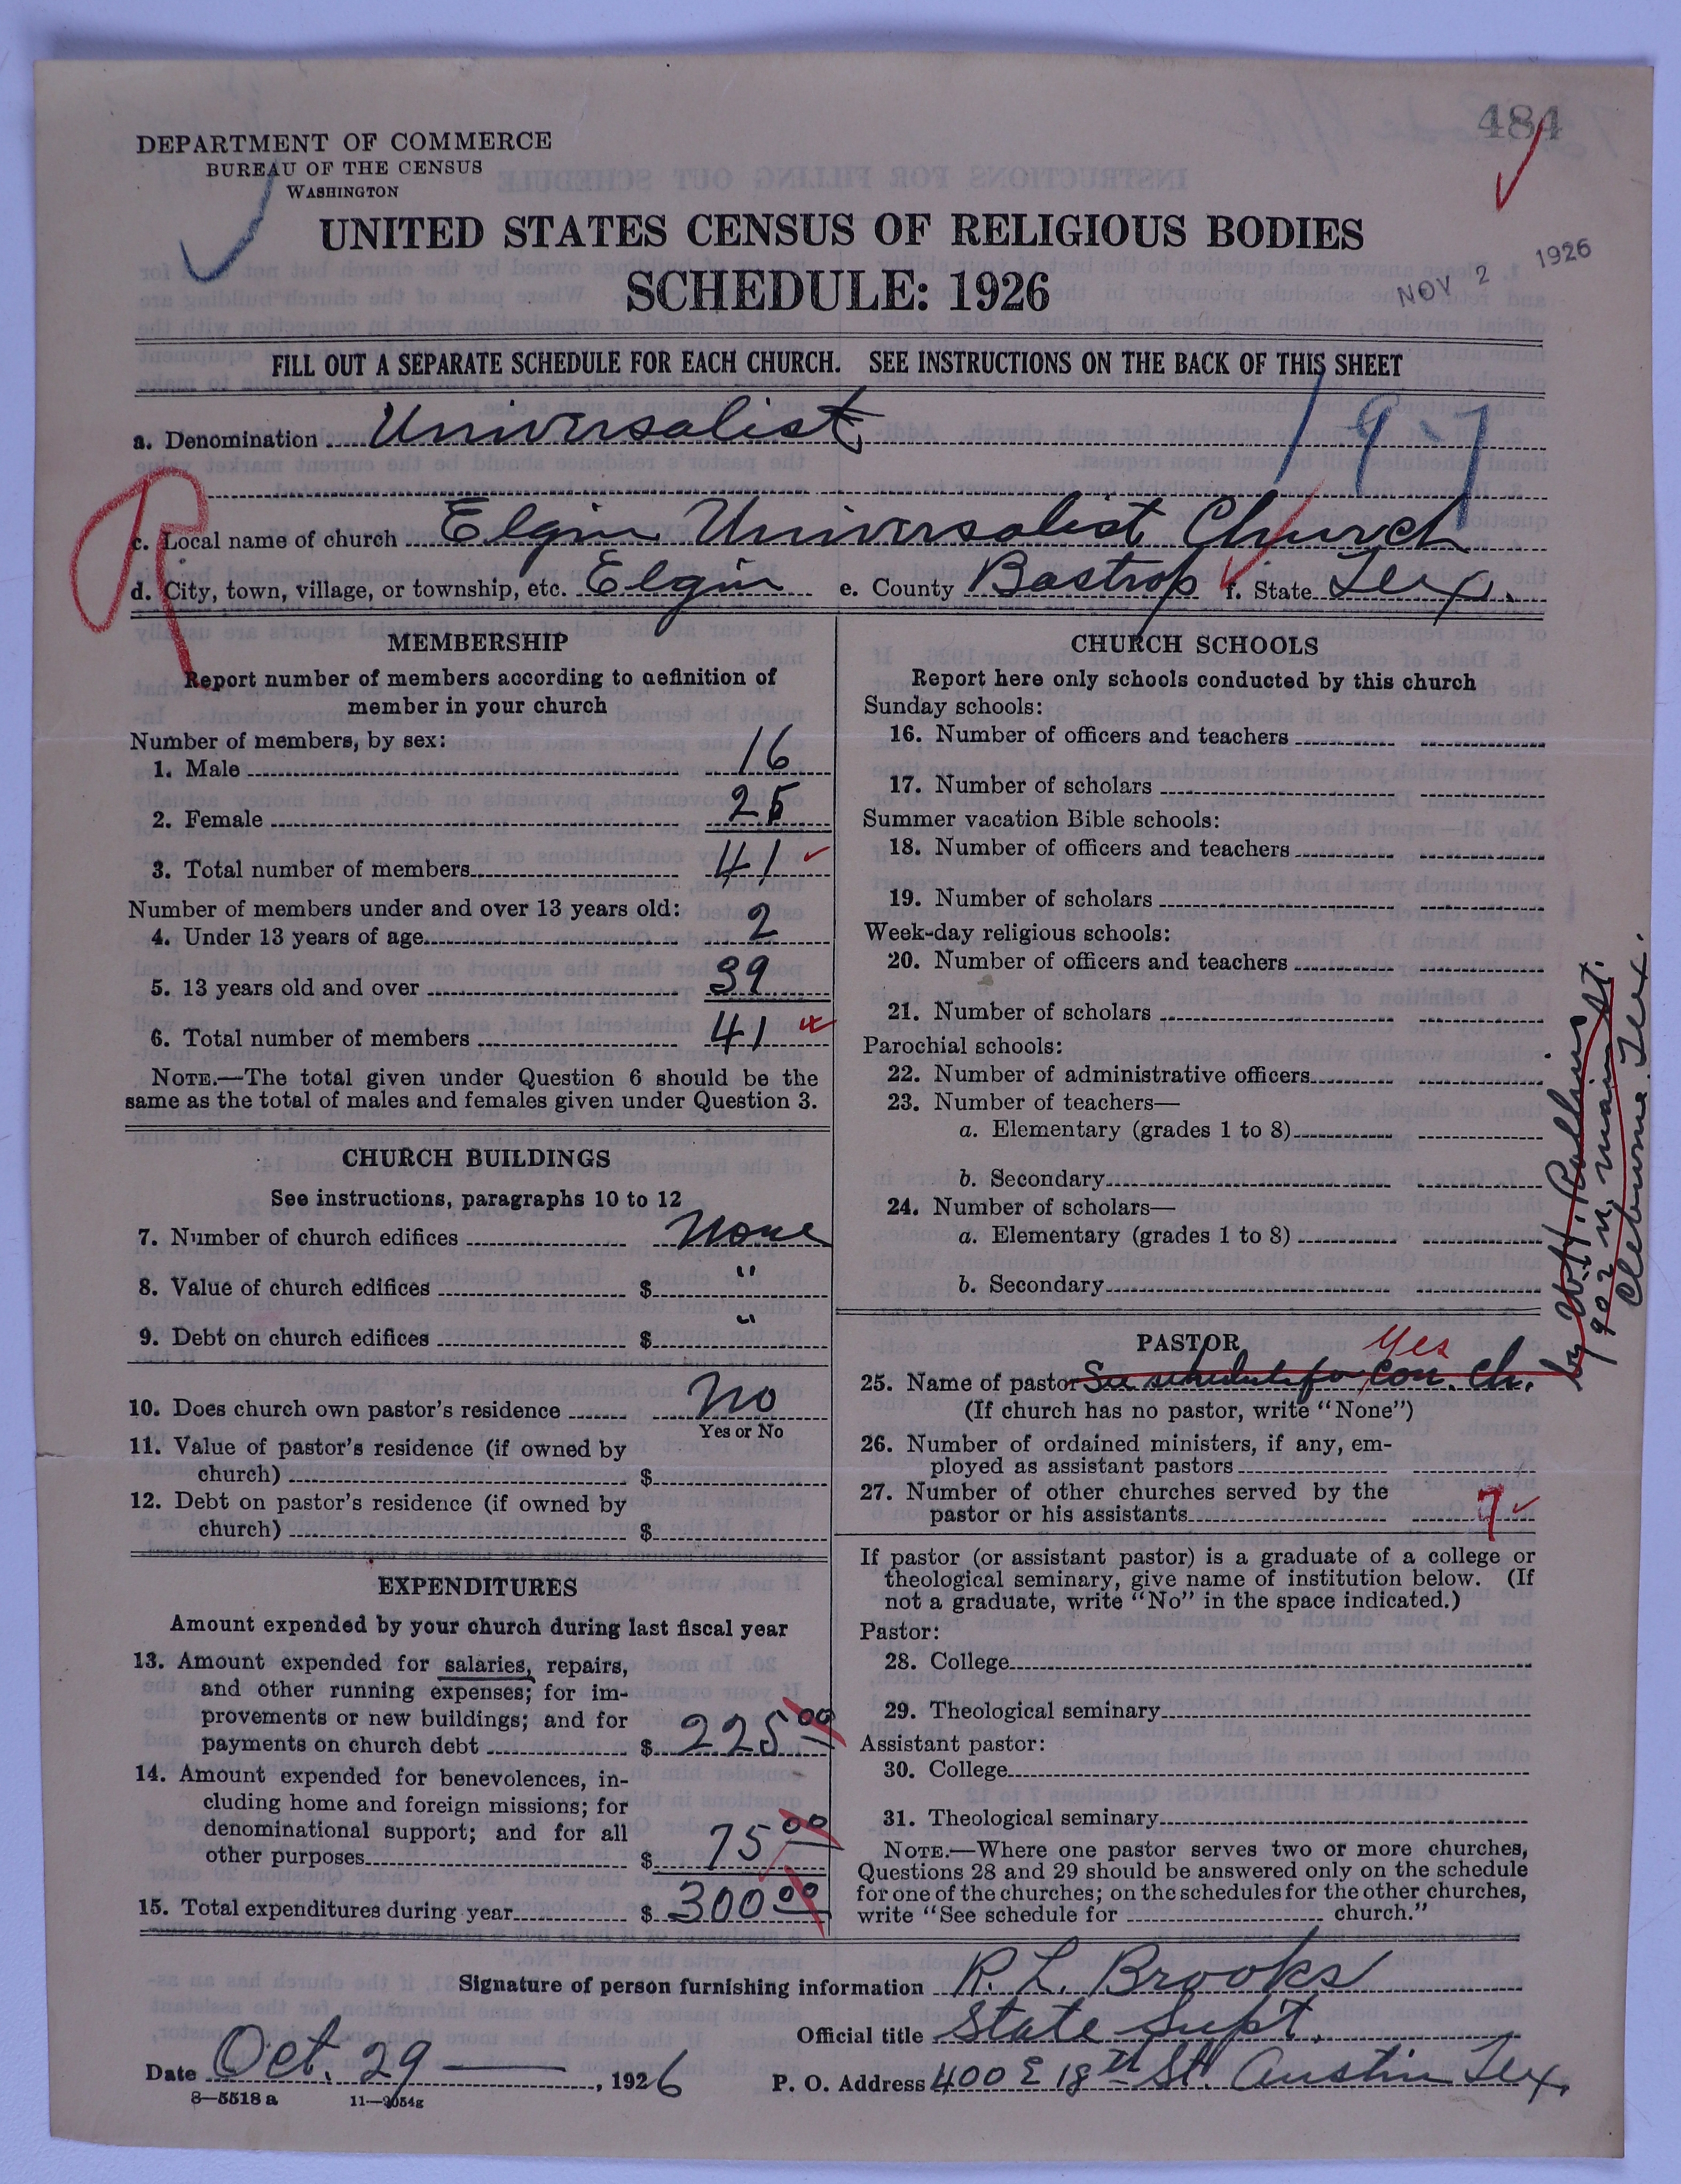 484
DEPARTMENT OF COMMERCE
BUREAU OF THE CENSUS
WASHINGTON
UNITED STATES CENSUS OF RELIGIOUS BODIES
SCHEDULE: 1926
NOV 2 1926
FILL OUT A SEPARATE SCHEDULE FOR EACH CHURCH. SEE INSTRUCTIONS ON THE BACK OF THIS SHEET
a. Denomination Universalist
197
R
c. Local name of church Elgin Universalist Church
d. City, town, village, or township, etc. Elgin e. County Bastrop f. State Tex.
MEMBERSHIP
Report number of members according to definition of
member in your church
Number of members, by sex:
1. Male 16
2. Female 25
3. Total number of members 41
Number of members under and over 13 years old:
4. Under 13 years of age 2
5. 13 years old and over 39
6. Total number of members 41
NOTE.—The total given under Question 6 should be the
same as the total of males and females given under Question 3.
CHURCH BUILDINGS
See instructions, paragraphs 10 to 12
7. Number of church edifices none
8. Value of church edifices $ "
9. Debt on church edifices $ "
10. Does church own pastor's residence No
Yes or No
11. Value of pastor's residence (if owned by
church) $
12. Debt on pastor's residence (if owned by
church) $
EXPENDITURES
Amount expended by your church during last fiscal year
13. Amount expended for salaries, repairs,
and other running expenses; for im-
provements or new buildings; and for
payments on church debt $ 225 00
14. Amount expended for benevolences, in-
cluding home and foreign missions; for
denominational support; and for all
other purposes $ 75 00
15. Total expenditures during year $ 300 00
CHURCH SCHOOLS
Report here only schools conducted by this church
Sunday schools:
16. Number of officers and teachers
17. Number of scholars
Summer vacation Bible schools:
18. Number of officers and teachers
19. Number of scholars
Week-day religious schools:
20. Number of officers and teachers
21. Number of scholars
Parochial schools:
22. Number of administrative officers
23. Number of teachers—
a. Elementary (grades 1 to 8)
b. Secondary
24. Number of scholars—
a. Elementary (grades 1 to 8)
b. Secondary
PASTOR
Yes
25. Name of pastor See schedule for Con. Ch.
by W.H. Rollins
902 N. Main St.
Cleburne Tex.
(If church has no pastor, write "None")
26. Number of ordained ministers, if any, em-
ployed as assistant pastors
27. Number of other churches served by the
pastor or his assistants 7
If pastor (or assistant pastor) is a graduate of a college or
theological seminary, give name of institution below. (If
not a graduate, write "No" in the space indicated.)
Pastor:
28. College
29. Theological seminary
Assistant pastor:
30. College
31. Theological seminary
NOTE.—Where one pastor serves two or more churches,
Questions 28 and 29 should be answered only on the schedule
for one of the churches; on the schedules for the other churches,
write "See schedule for church."
Signature of person furnishing information R. L. Brooks
Official title State Supt.
Date Oct. 29, 1926 P. O. Address 400 E 18th St. Austin Tex.
8—5518 a 11—9054g